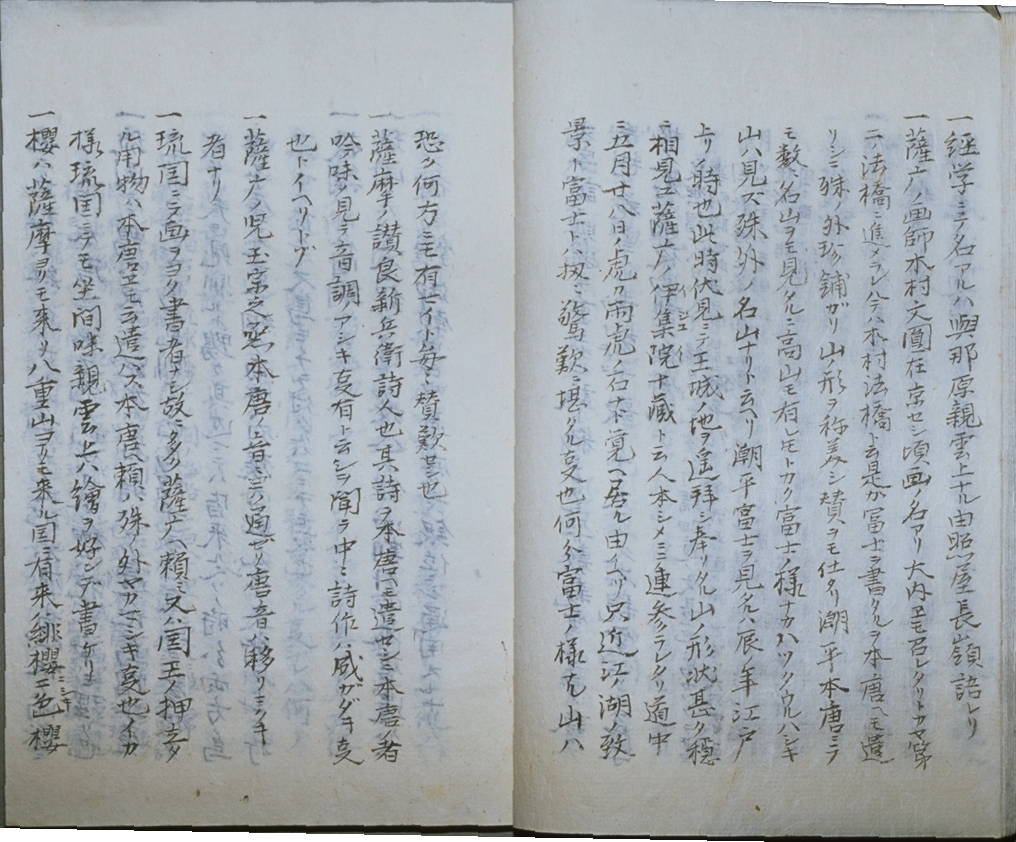 一経学ニテ名アルハ與那原親雲上ナル由照屋長嶺語レリ
一薩广ノ画師木村文圓在京セシ頃画ノ名アリ大内ヱモ召レタリトカヤ第
二ノ法橋ニ進メラレ今ハ木村法橋ト云是カ冨士ヲ書タルヲ本唐ヘモ遣
リシニ殊ノ外珍舗ガリ山ノ形ヲ称美シ賛ヲモ仕タリ潮平本唐ニテ
モ数々名山ヲモ見タルニ高山モ有レモトカク富士ノ様ナカハツクウルハシキ
山ハ見ズ殊外ノ名山ナリト云ヘリ潮平富士ヲ見タルハ辰ノ年江戸
上リノ時也此時伏見ニテ王城ノ地ヲ遥拝シ奉リタル山ノ形状甚タ穏
ニ相見エ薩广ノ伊集院十蔵ト云人本シメニミ連参ラレタリ道中
ニ五月廿八日ノ虎ク雨虎ノ石ナド覚ヘ居ル由イヘリ只近江ノ湖ノ致
景ト富士トハ扨々驚歎ニ堪タル支也何分富士ノ様ナル山ハ
恐ク何方ニモ有マイト毎々賛歎セリ也
一薩摩ノ讃良新兵衛詩人也其詩ヲ本唐ヘモ遣セシニ本唐ノ者
吟味ヲ見テ音調アシキ支有ト云シヲ聞ラ中々詩作ハ成ガタキ支
也トイヘリトゾ
一薩广ノ児玉宗之丞本唐ノ音ニ云通ゼリ唐音ハ移リニクキ
者ナリ
一琉国ニテ画ヲヨク書者ナシ故ニ多ク薩广ヘ頼ミ又ハ国王ノ押立タ
ル用物ハ本唐ヱモ云遣ハス本唐ヘ頼ハ殊ノ外ヤカマシキ支也イカ
様琉国ニテモ坐間味親雲上ハ繪ヲ好ンデ書ケリ
一櫻ハ薩摩ヨリモ来リ八重山ヨリモ来ル国ニ有来ハ緋櫻ニ色櫻